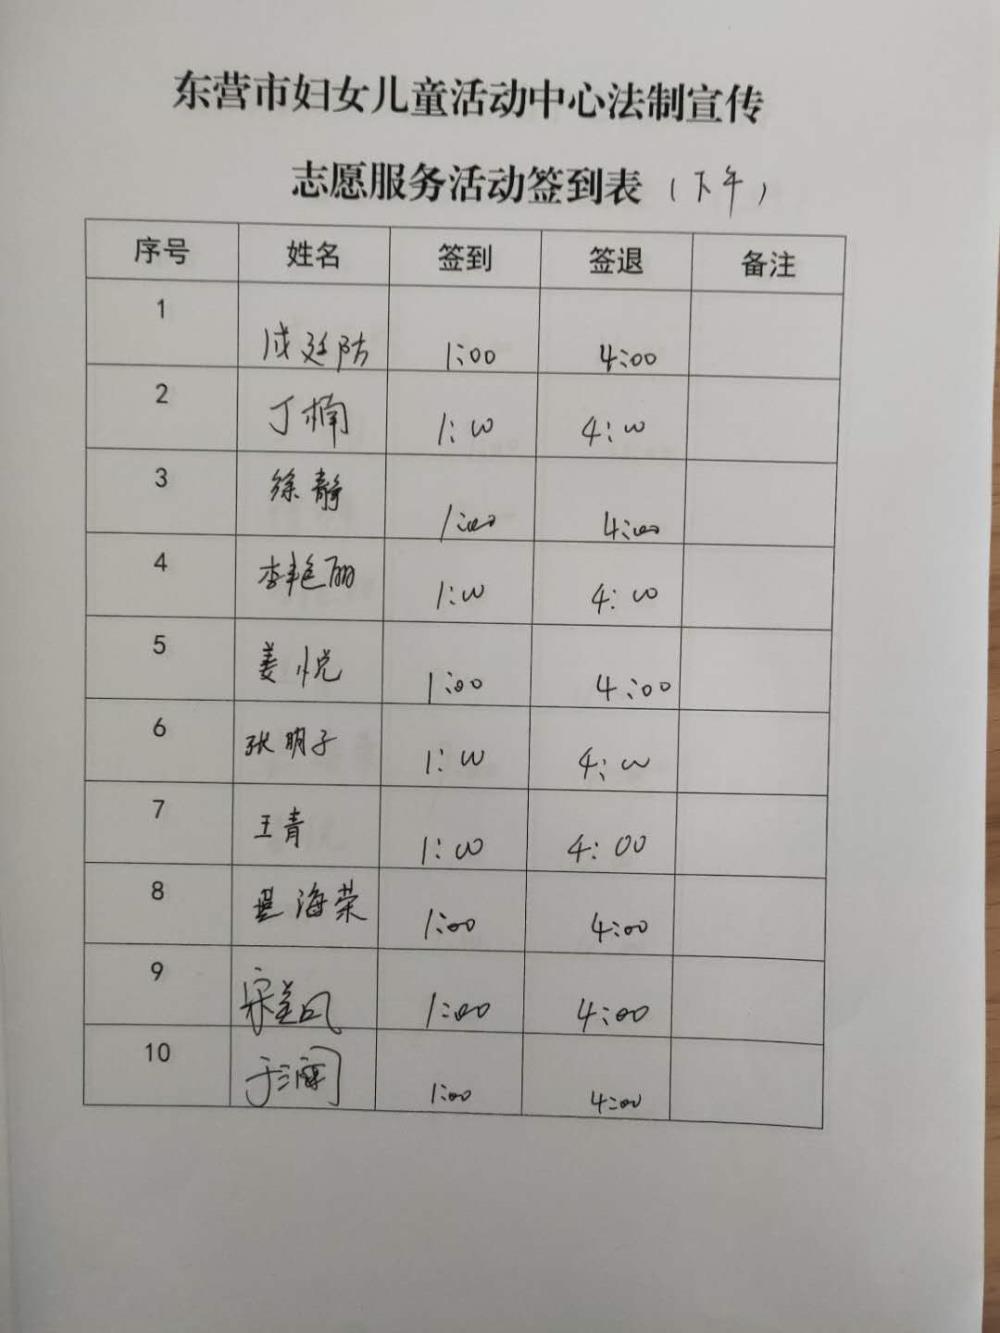 东营市妇女儿童活动中心法制宣传
志愿服务活动签到表（下午）
序号 姓名 签到 签退 备注
1 1:00 4:00
2 丁楠 1:00 4:00
3 徐静 1:00 4:00
4 李艳丽 1:00 4:00
5 姜悦 1:00 4:00
6 张明子 1:00 4:00
7 王青 1:00 4:00
8 海荣 1:00 4:00
9 1:00 4:00
10 1:00 4:00